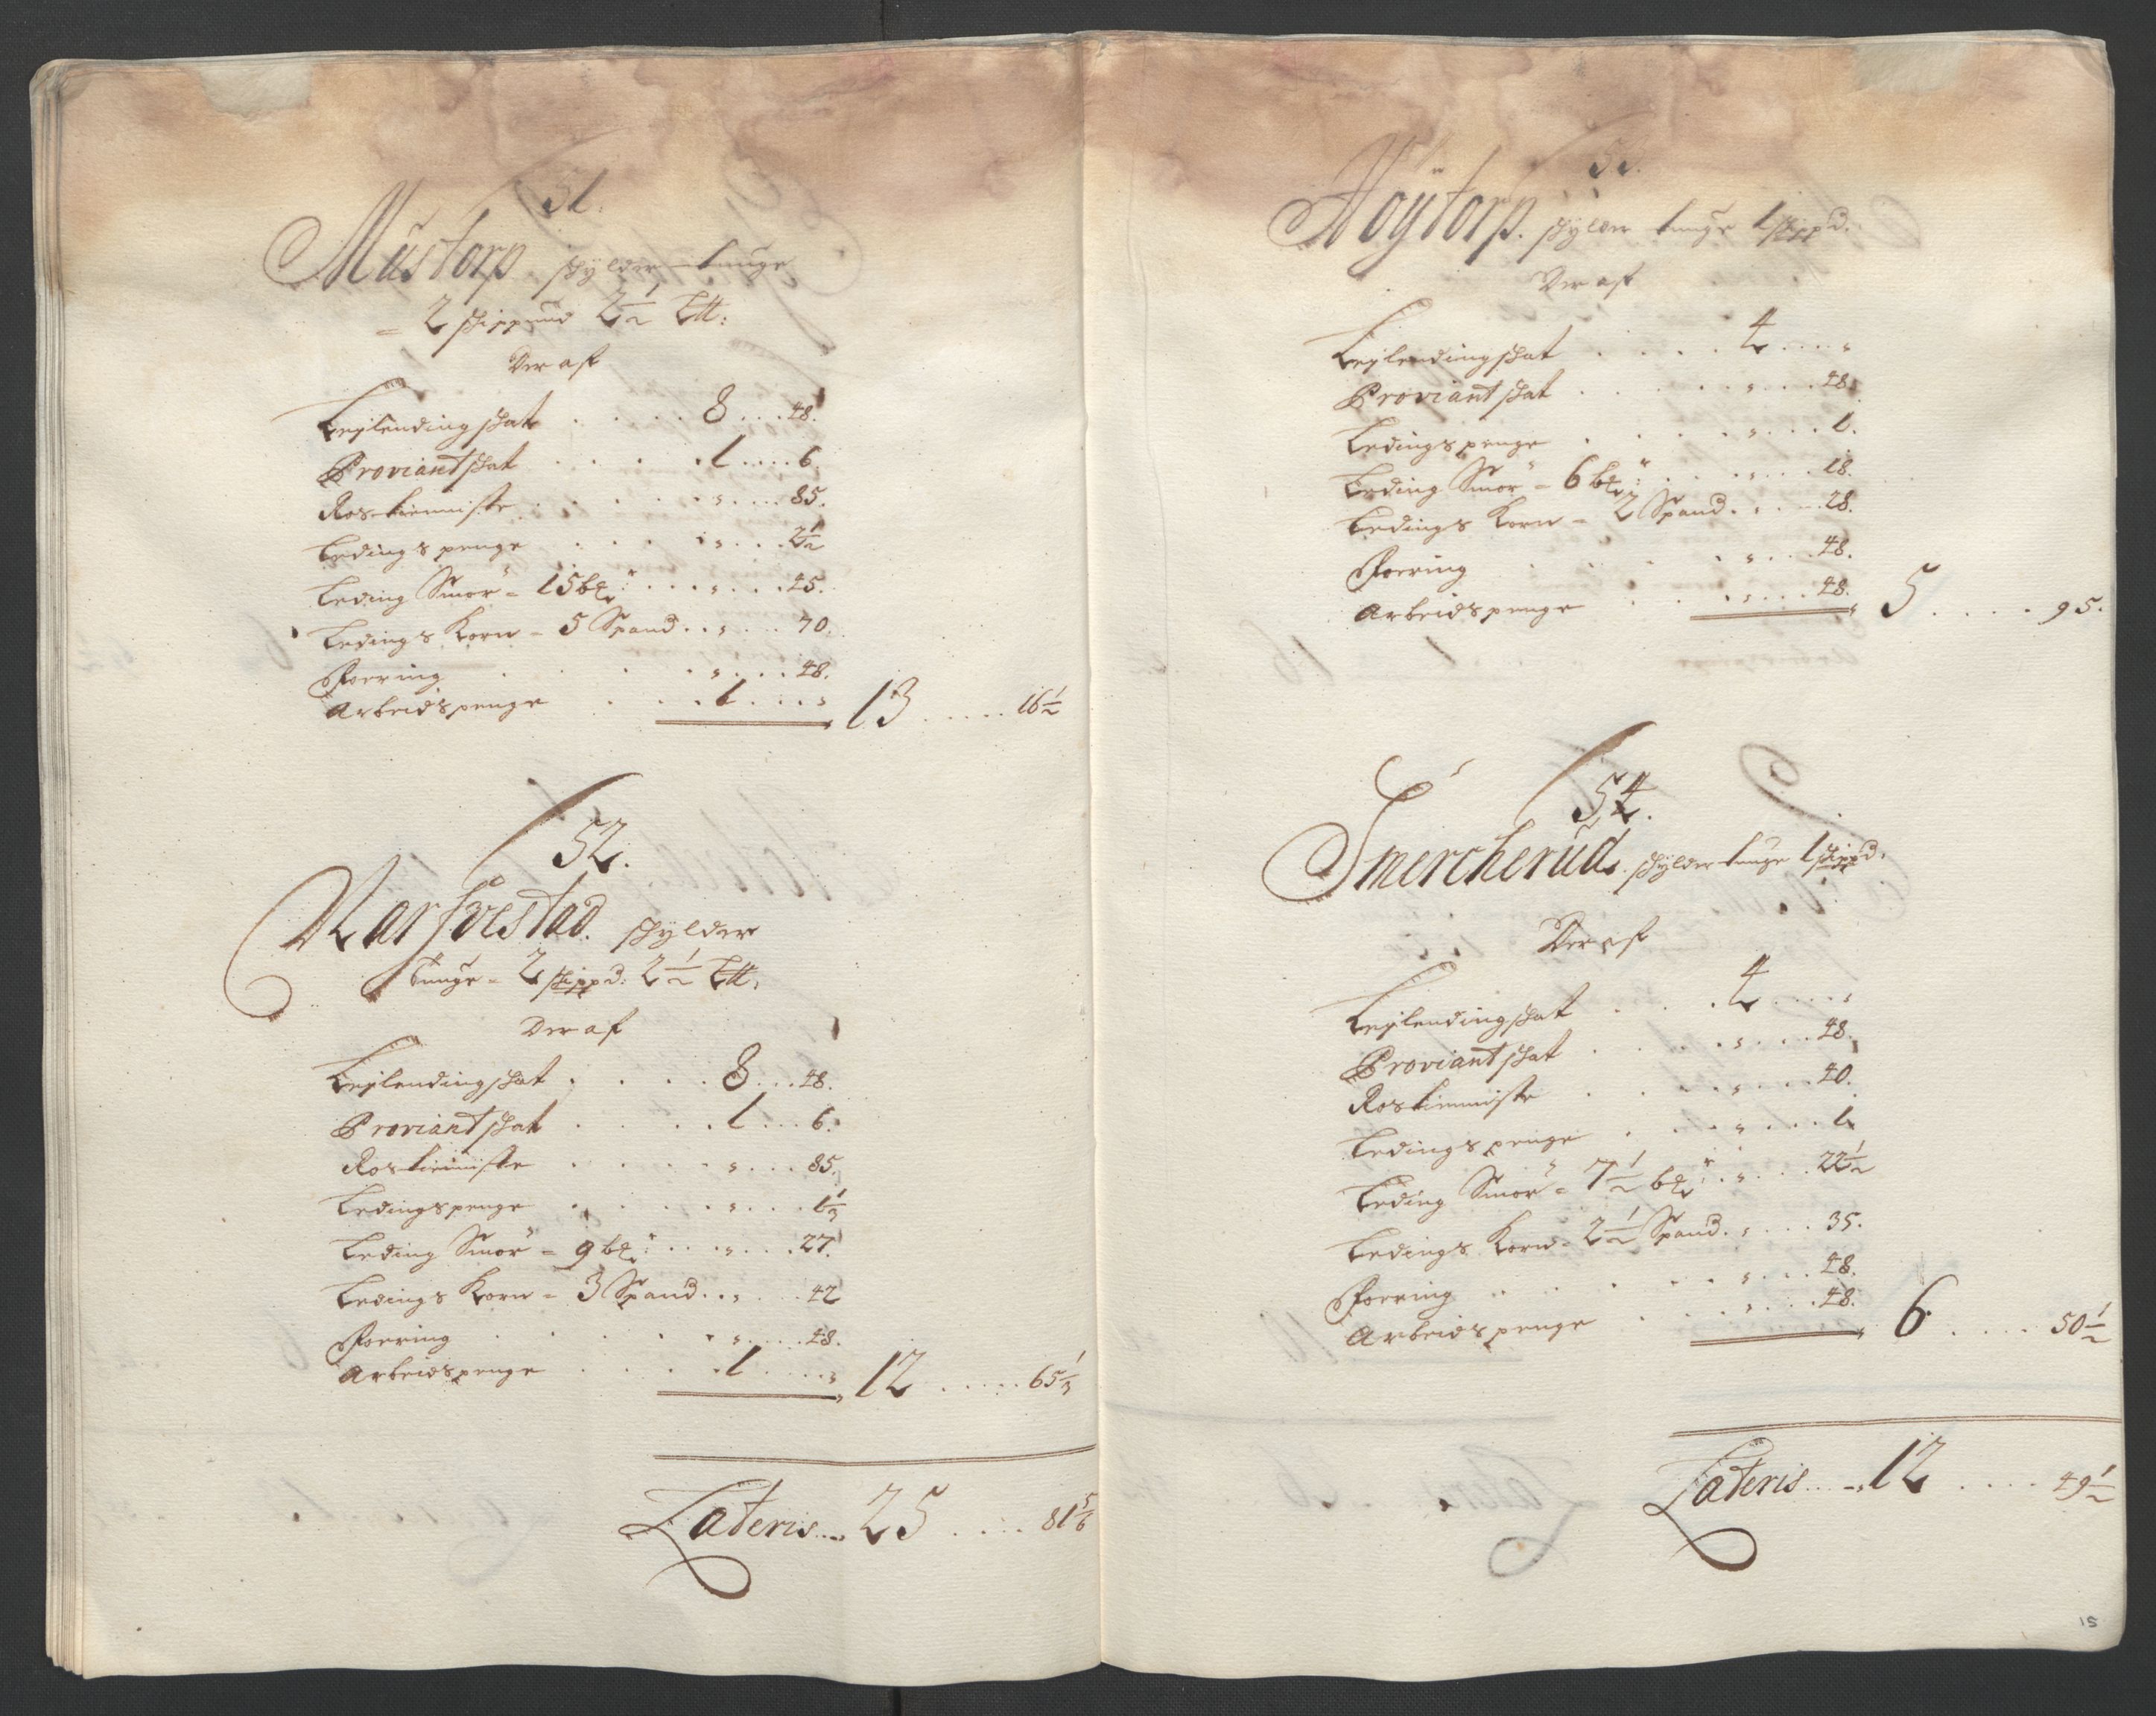 51.
Müstorp schÿlder tunge
= 2 schippund 2½ L℔:
Der af
Leÿlendingschat . . . . 8 . . . 48.
Proviantschat . . . . . 1 . . . . 6.
Rostienniste . . . . . „ . . . . 85.
Ledingspenge . . . . „ . . . 2½
Leding Smör = 15 bℓr: . . . „ . . . 45.
Ledings Korn = 5 Spand . . „ . . 70.
Foering . . . . „ . . . 48.
Arbeidspenge . . . . 1 . . . „ 13 . . . . . 16½
52.
Narfvestad. schÿlder
tunge = 2 schippd: 2½ L℔.
Der af
Leÿlendingschat . . . . 8 . . . 48.
Proviantschat . . . . 1 . . . 6.
Rostienniste . . . . „ . . . 85.
Ledingspenge . . . . . „ . . . 1⅓
Leding Smör = 9 bℓr: . . . „ . . . 27.
Ledings Korn = 3 Spand . . „ . . 42
Foering . . . . . „ . . . . 48.
Arbeidspenge . . . . 1 . . . . „ 12 . . . . . 65⅓
Lateris .... 25 . . . . 81⅚
53.
Höÿtorp. schÿlder tunge 1 schippd.
Der af
Leÿlendingschat . . . . 4 . . . . „
Proviantschat . . . . . „ . . . 48.
Ledingspenge . . . . . „ . . . 1.
Leding Smör = 6 bℓr: . . . „ . . . 18.
Ledings Korn = 2 Spand . . . . 28.
Foering . . . . . „ . . . 48.
Arbeidspenge . . . . „ . . . 48. 5 . . . . 95.
54.
Smercherud. schÿlder tunge 1 schippd.
Der af
Leÿlendingschat . . . 4 . . . . „
Proviantschat . . . . . „ . . . 48.
Rostienniste . . . . . „ . . . . 40.
Ledingspenge . . . . „ . . . 1.
Leding Smör = 7½ bℓr: . „ . . . 22½
Ledings Korn = 2½ Spand . „ . . . 35.
Foering . . . . . . „ . . . 48.
Arbeidspenge . . . . „ . . . 48. 6 . . . . 50½
Lateris .... 12 . . . . 49½
15